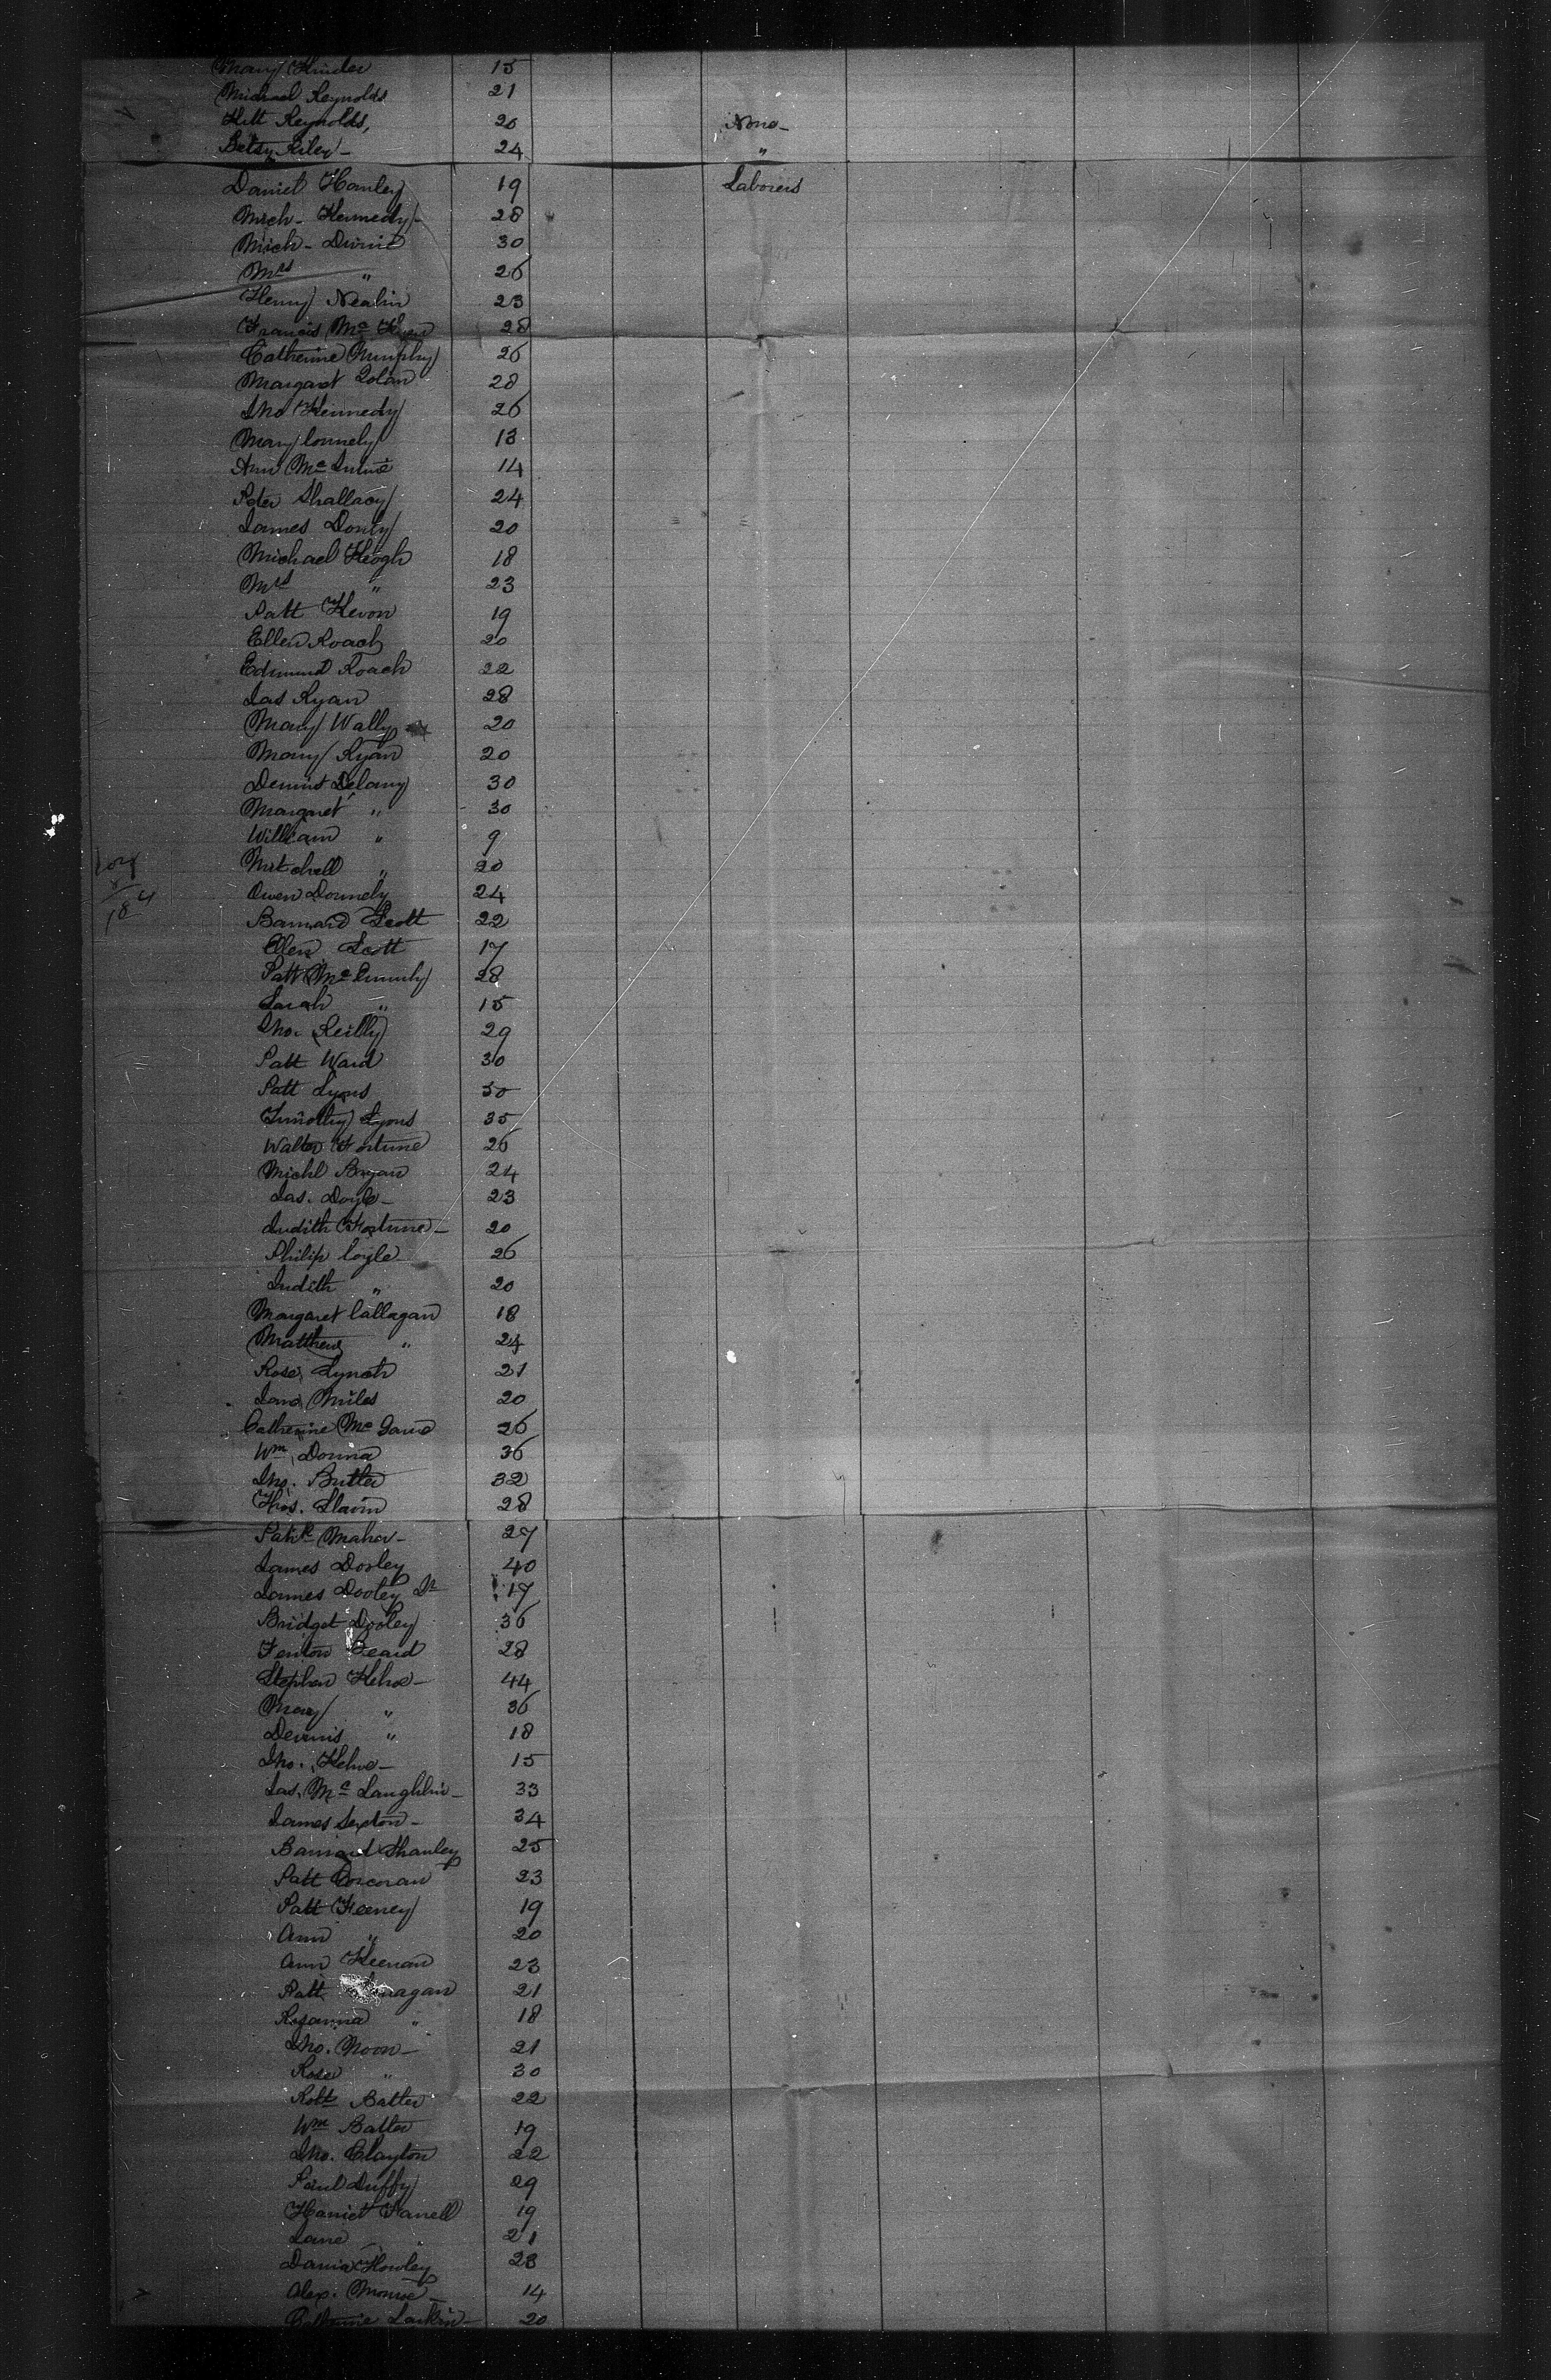 Mary 15
Michael Reynolds 21
Kitt Reynolds, 20 None -
Betsy Riley - 24 "
Daniel Hanley 19 Laborers
Mich - Kennedy - 28
Mich - 30
Mrs " 26
Henry Nealin 23
Francis Mc 28
Catherine Murphy 26
Margaret Dolan 28
Jno Kennedy 26
Mary Connely 13
Ann Mc 14
Peter Shallacy 24
James 20
Michael Keogh 18
Mrs " 23
Patt Kevon 19
Ellen Roach 20
Edmund Roach 22
Jas Ryan 28
Mary Wally 20
Mary Ryan 20
Dennis Delany 30
Margaret " 30
William " 9
Mitchell " 20
Owen Donnely 24
Barnard Scott 22
Ellen Scott 17
Patt Mc 28
Sarah " 15
Jno. Reilly 29
Patt Ward 30
Patt Lyons 50
Timothy Lyons 35
Walter Fortune 26
Michl Bryan 24
Jas. Doyle - 23
Judith Fortune - 20
Philip Coyle 26
Judith " 20
Margaret Callagan 18
Matthew " 24
Rose Lynch 21
Jane Miles 20
Catherine Mc 26
Wm Donna 36
Jno. Butler 32
Thos. Slavin 28
Patk Maher - 27
James Dooley 40
James Dooley Jr 17
Bridget Dooley 36
Fenton Beard 28
Stephen Kehoe - 44
Mary " 36
Dennis " 18
Jno. Kehoe - 15
Jas. Mc Laughlin - 33
James Sexton - 34
Barnard Shanley 25
Patt Corcoran 23
Patt Feeney 19
Ann " 20
Ann Keenan 23
Patt 21
Rosanna " 18
Jno. Moon - 21
Rose " 30
Robt Batter 22
Wm Batter 19
Jno. Clayton 22
Paul Duffy 29
Harriet Farrell 19
Jane " 21
Daniel Howley 28
Alex. Monroe - 14
Catherine Larkin - 20